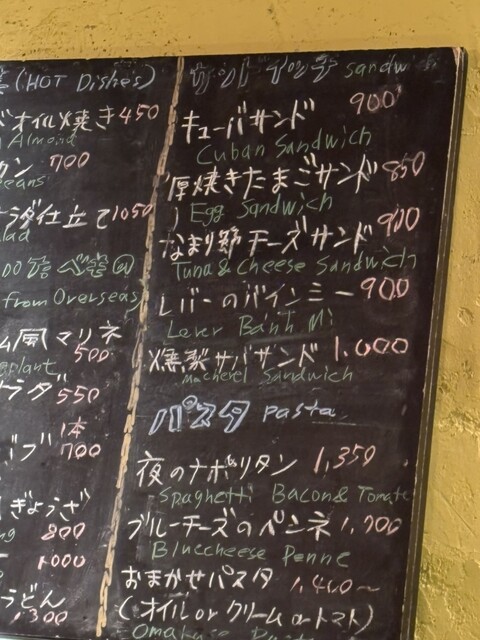 (HOT Dishes)
オイル焼き 450
Almond
700
仕立て 1050
from Overseas
風マリネ
500
ラダ 550
1本
700
ぎょうざ
800
1000
うどん
300
サンドイッチ sandwi
900
キューバサンド
Cuban Sandwich
厚焼きたまごサンド 850
Egg Sandwich
900
なまり節チーズサンド
Tuna & Cheese Sandwich
レバーのバインミー 900
Lever Banh Mi
燻製サバサンド 1,000
Macherel Sandwich
パスタ pasta
夜のナポリタン 1,350
Spaghetti Bacon & Tomato
ブルーチーズのペンネ 1,700
Bluecheese Penne
おまかせパスタ 1,400～
(オイル or クリーム or トマト)